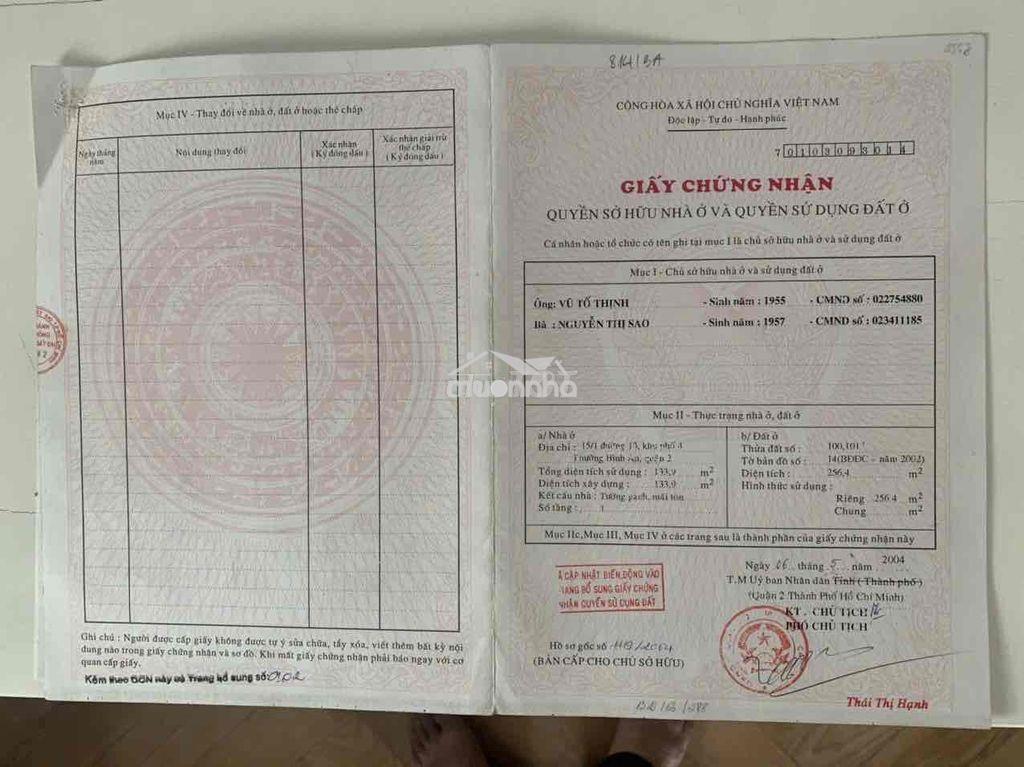 Mục IV - Thay đổi về nhà ở, đất ở hoặc thế chấp
Ngày tháng năm
Nội dung thay đổi
Xác nhận
( Ký đóng dấu )
Xác nhận giải trừ
thế chấp
( Ký đóng dấu )
Ghi chú : Người được cấp giấy không được tự ý sửa chữa, tẩy xóa, viết thêm bất kỳ nội
dung nào trong giấy chứng nhận và sơ đồ. Khi mất giấy chứng nhận phải báo ngay với cơ
quan cấp giấy.
Kèm theo GCN này có Trang bổ sung số: 01.02
814/BA
CỘNG HÒA XÃ HỘI CHỦ NGHĨA VIỆT NAM
Độc lập - Tự do - Hạnh phúc
7 0103093014
GIẤY CHỨNG NHẬN
QUYỀN SỞ HỮU NHÀ Ở VÀ QUYỀN SỬ DỤNG ĐẤT Ở
Cá nhân hoặc tổ chức có tên ghi tại mục I là chủ sở hữu nhà ở và sử dụng đất ở
Mục I - Chủ sở hữu nhà ở và sử dụng đất ở
Ông: VŨ TỐ THỊNH - Sinh năm : 1955 - CMND số : 022754880
Bà : NGUYỄN THỊ SAO - Sinh năm : 1957 - CMND số : 023411185
muonnha
Mục II - Thực trạng nhà ở, đất ở
a/ Nhà ở
Địa chỉ : 15/1 đường 13, khu phố 4
Phường Bình An, quận 2
Tổng diện tích sử dụng : 133,9 m2
Diện tích xây dựng : 133,9 m2
Kết cấu nhà : Tường gạch, mái tôn
Số tầng : 1
b/ Đất ở
Thửa đất số : 100,101
Tờ bản đồ số : 14(BĐĐC - năm 2002)
Diện tích : 256,4 m2
Hình thức sử dụng :
Riêng 256.4 m2
Chung m2
Mục IIc, Mục III, Mục IV ở các trang sau là thành phần của giấy chứng nhận này
Ngày 06 tháng 5 năm 2004
T.M Uỷ ban Nhân dân Tỉnh ( Thành phố )
(Quận 2 Thành Phố Hồ Chí Minh)
KT. CHỦ TỊCH
PHÓ CHỦ TỊCH
CẬP NHẬT BIẾN ĐỘNG VÀO
TRANG BỔ SUNG GIẤY CHỨNG
NHẬN QUYỀN SỬ DỤNG ĐẤT
Hồ sơ gốc số /2004
(BẢN CẤP CHO CHỦ SỞ HỮU)
Thái Thị Hạnh